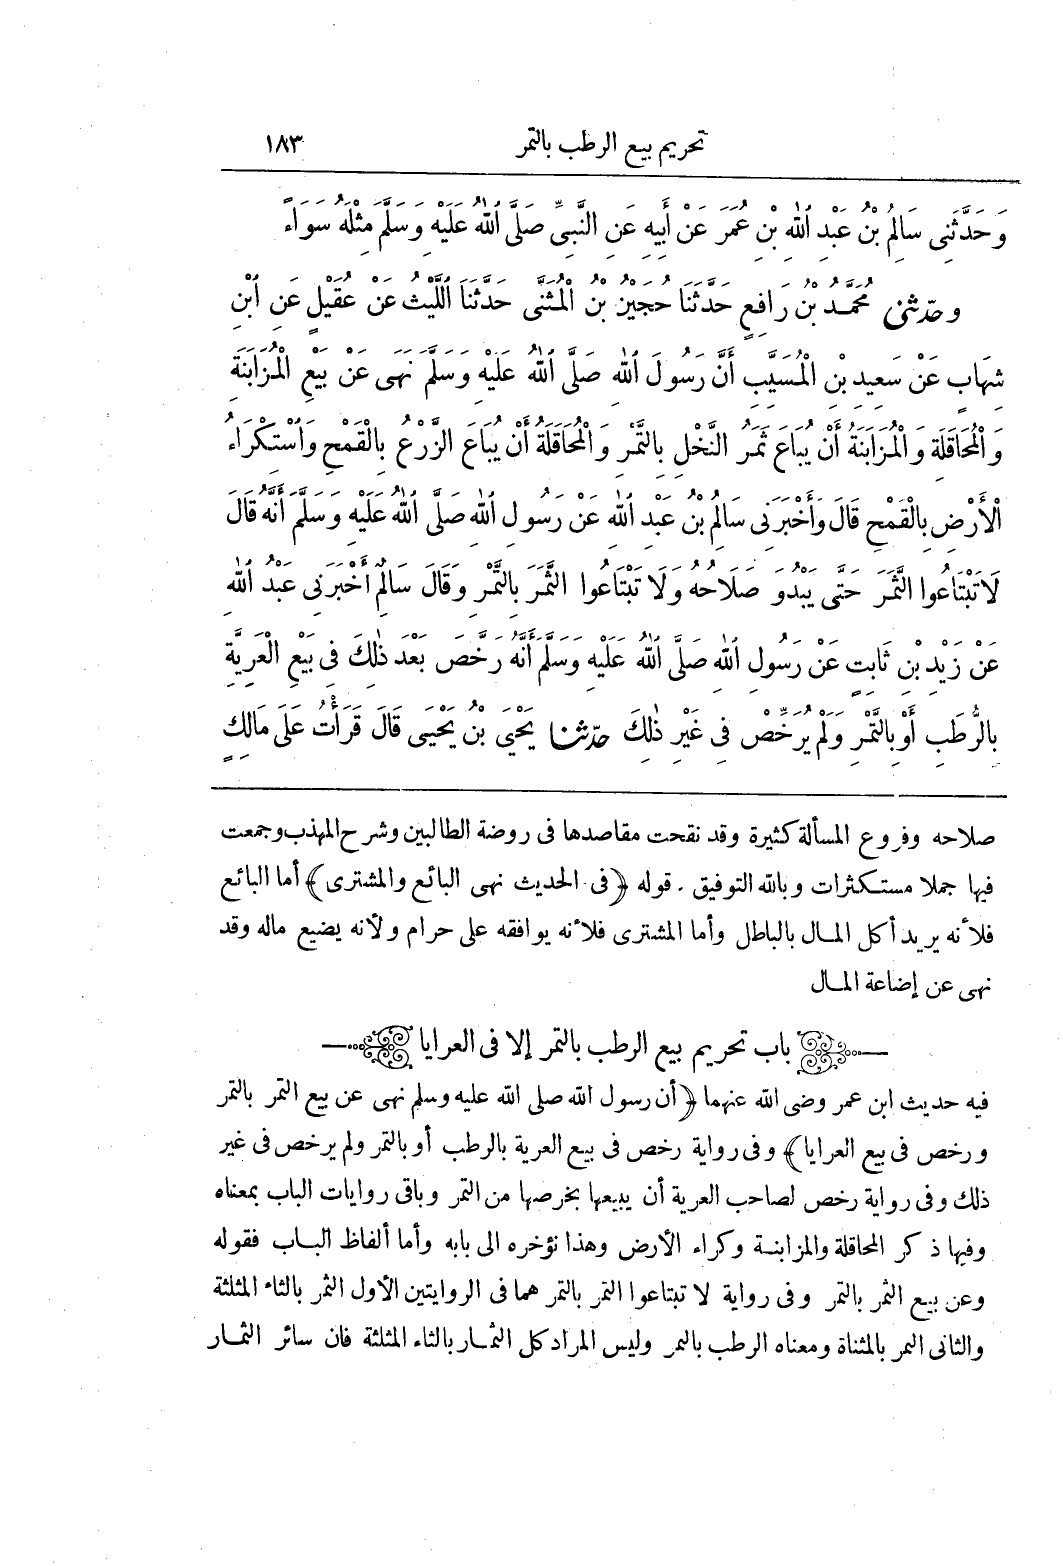 تحريم بيع الرطب بالتمر ١٨٣
وَحَدَّثَنِى سَالِمُ بْنُ عَبْدِ اللهِ بْنِ عُمَرَ عَنْ أَبِيهِ عَنِ النَّبِىِّ صَلَّى اللهُ عَلَيْهِ وَسَلَّمَ مِثْلَهُ سَوَاءً
وحَدَّثَنِى مُحَمَّدُ بْنُ رَافِعٍ حَدَّثَنَا حُجَيْنُ بْنُ الْمُثَنَّى حَدَّثَنَا اللَّيْثُ عَنْ عُقَيْلٍ عَنِ ابْنِ
شِهَابٍ عَنْ سَعِيدِ بْنِ الْمُسَيَّبِ أَنَّ رَسُولَ اللهِ صَلَّى اللهُ عَلَيْهِ وَسَلَّمَ نَهَى عَنْ بَيْعِ الْمُزَابَنَةِ
وَالْمُحَاقَلَةِ وَالْمُزَابَنَةُ أَنْ يُبَاعَ ثَمَرُ النَّخْلِ بِالتَّمْرِ وَالْمُحَاقَلَةُ أَنْ يُبَاعَ الزَّرْعُ بِالْقَمْحِ وَاسْتِكْرَاءُ
الْأَرْضِ بِالْقَمْحِ قَالَ وَأَخْبَرَنِى سَالِمُ بْنُ عَبْدِ اللهِ عَنْ رَسُولِ اللهِ صَلَّى اللهُ عَلَيْهِ وَسَلَّمَ أَنَّهُ قَالَ
لَا تَبْتَاعُوا الثَّمَرَ حَتَّى يَبْدُوَ صَلَاحُهُ وَلَا تَبْتَاعُوا الثَّمَرَ بِالتَّمْرِ وَقَالَ سَالِمٌ أَخْبَرَنِى عَبْدُ اللهِ
عَنْ زَيْدِ بْنِ ثَابِتٍ عَنْ رَسُولِ اللهِ صَلَّى اللهُ عَلَيْهِ وَسَلَّمَ أَنَّهُ رَخَّصَ بَعْدَ ذٰلِكَ فِى بَيْعِ الْعَرِيَّةِ
بِالرُّطَبِ أَوْ بِالتَّمْرِ وَلَمْ يُرَخِّصْ فِى غَيْرِ ذٰلِكَ حَدَّثَنَا يَحْيَى بْنُ يَحْيَى قَالَ قَرَأْتُ عَلَى مَالِكٍ
صلاحه وفروع المسألة كثيرة وقد نقحت مقاصدها فى روضة الطالبين وشرح المهذب وجمعت
فيها جملا مستكثرات وبالله التوفيق . قوله ﴿فى الحديث نهى البائع والمشترى﴾ أما البائع
فلأنه يريد أكل المال بالباطل وأما المشترى فلأنه يوافقه على حرام ولأنه يضيع ماله وقد
نهى عن إضاعة المال
باب تحريم بيع الرطب بالتمر إلا فى العرايا
فيه حديث ابن عمر رضى الله عنهما ﴿أن رسول الله صلى الله عليه وسلم نهى عن بيع التمر بالتمر
ورخص فى بيع العرايا﴾ وفى رواية رخص فى بيع العرية بالرطب أو بالتمر ولم يرخص فى غير
ذلك وفى رواية رخص لصاحب العرية أن يبيعها بخرصها من التمر وباقى روايات الباب بمعناه
وفيها ذكر المحاقلة والمزابنة وكراء الأرض وهذا نؤخره الى بابه وأما ألفاظ الباب فقوله
وعن بيع الثمر بالتمر وفى رواية لا تبتاعوا الثمر بالتمر هما فى الروايتين الأول الثمر بالثاء المثلثة
والثانى التمر بالمثناة ومعناه الرطب بالتمر وليس المراد كل الثمار بالثاء المثلثة فان سائر الثمار